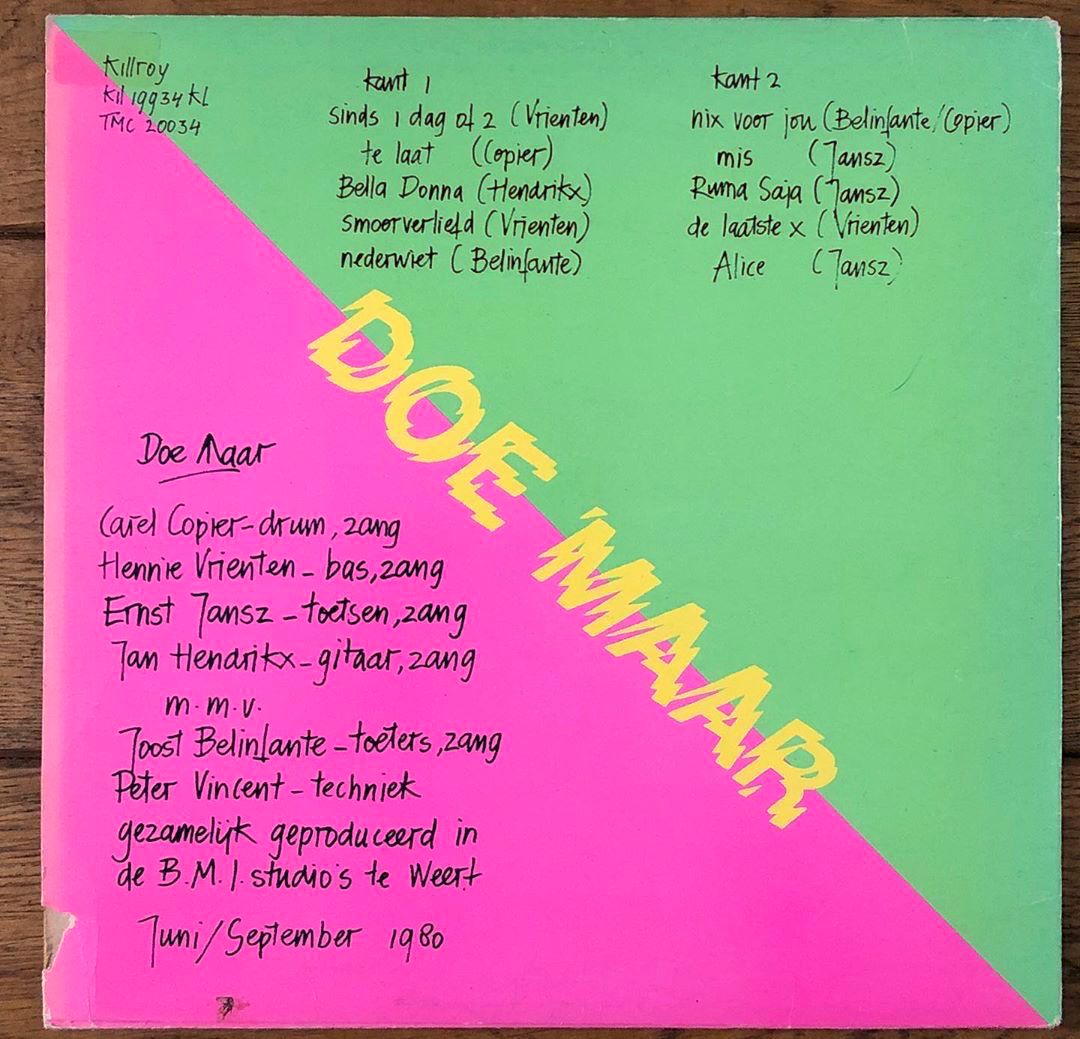 Killroy
Kil 19934 KL
TMC 20034
kant 1
sinds 1 dag of 2 (Vrienten)
te laat (Copier)
Bella Donna (Hendrikx)
smoorverliefd (Vrienten)
nederwiet (Belinfante)
kant 2
nix voor jou (Belinfante/Copier)
mis (Jansz)
Ruma Saja (Jansz)
de laatste x (Vrienten)
Alice (Jansz)
DOE MAAR
Doe Maar
Carel Copier - drum, zang
Hennie Vrienten - bas, zang
Ernst Jansz - toetsen, zang
Jan Hendrikx - gitaar, zang
m.m.v.
Joost Belinfante - toeters, zang
Peter Vincent - techniek
gezamelijk geproduceerd in
de B.M.I. studio's te Weert
Juni/September 1980